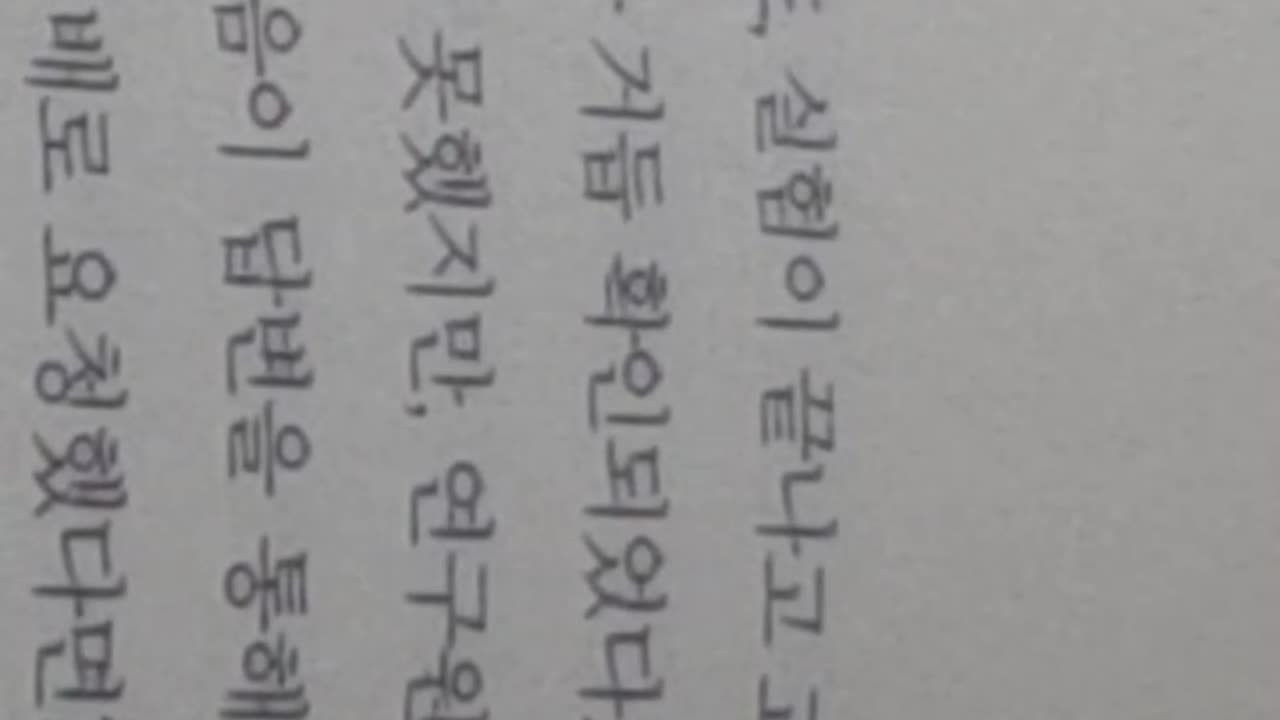 실험이 끝나고
거듭 확인되었다
못했지만, 연구원
음이 답변을 통해
베로 요청했다면